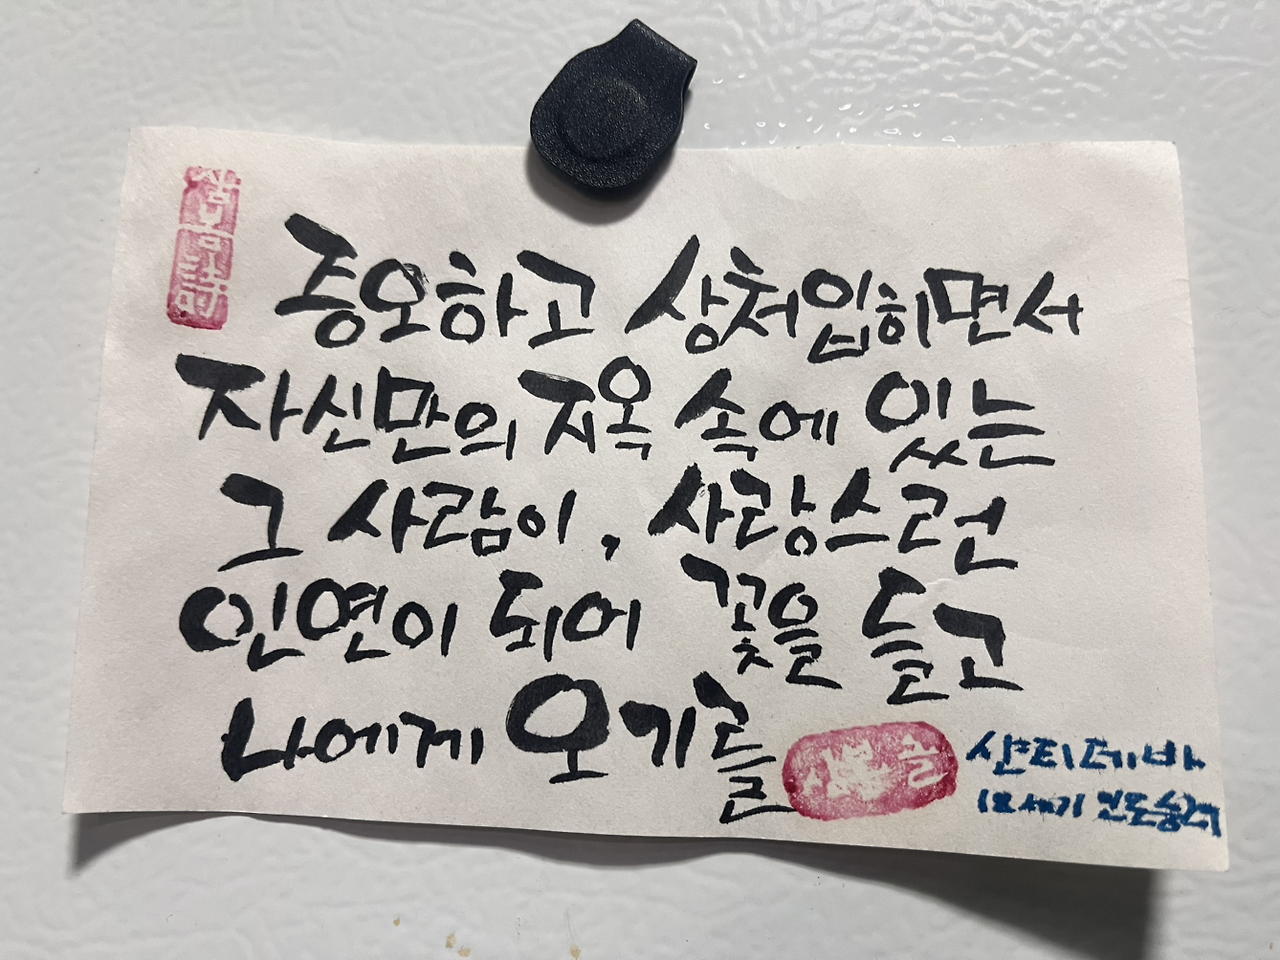 증오하고 상처입히면서
자신만의 지옥 속에 있는
그 사람이, 사랑스런
인연이 되어 꽃을 들고
나에게 오기를
샨티데바
인도승려